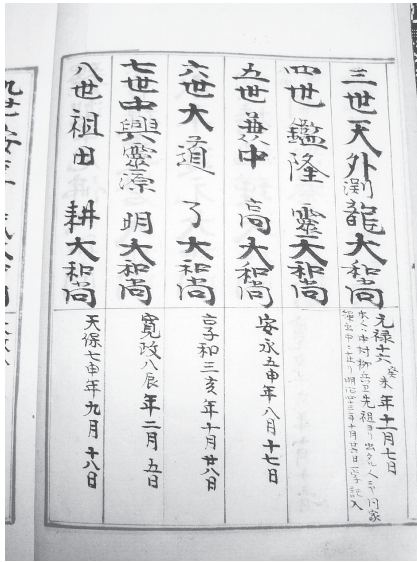 三世天外淵龍大和尚
元禄十六癸未年十二月七日
四世鑑隆靈大和尚
五世兼中高大和尚
安永五申年八月十七日
六世大道了大和尚
享和三亥年十月廿八日
七世中興靈源明大和尚
寛政八辰年二月五日
八世祖田耕大和尚
天保七申年九月十八日
九世